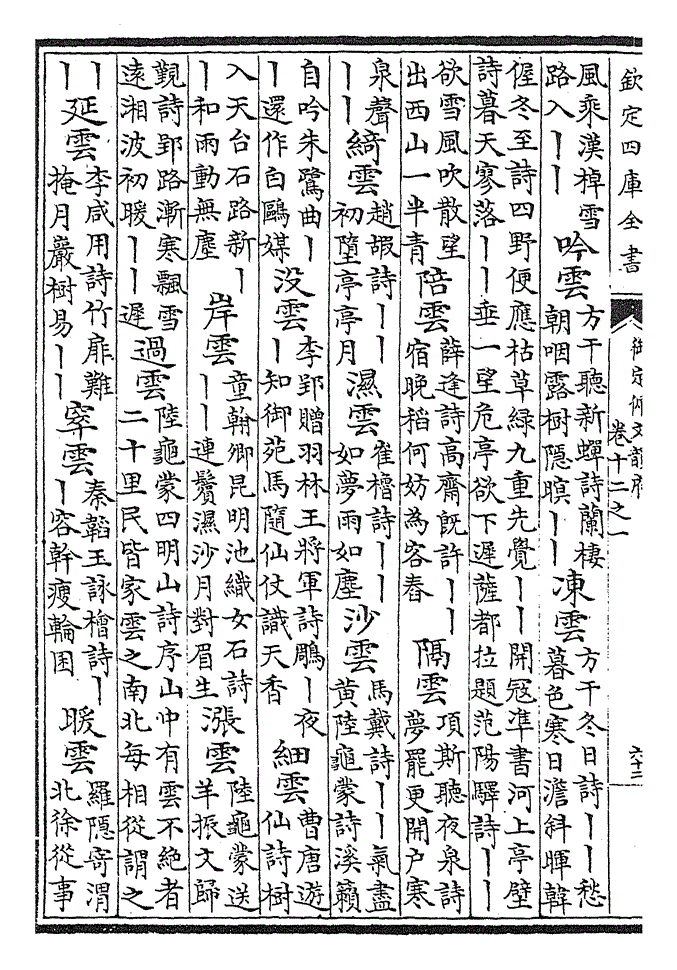 欽定四庫全書
御定佩文韻府
卷十二之一
六十二
風乘漢棹雪
路入丨丨
吟雲
方干聽新蟬詩蘭棲
朝咽露樹隱暝丨丨
凍雲
方干冬日詩丨丨愁
暮色寒日澹斜暉韓
偓冬至詩四野便應枯草綠九重先覺丨丨開冦凖書河上亭壁
詩暮天寥落丨丨垂一望危亭欲下遲薩都拉題范陽驛詩丨丨
欲雪風吹散望
出西山一半青
陪雲
薛逢詩高齋既許丨丨
宿晚稻何妨為客舂
隔雲
項斯聽夜泉詩
夢罷更開户寒
泉聲
丨丨
綺雲
趙嘏詩丨丨
初墮亭亭月
濕雲
崔櫓詩丨丨
如夢雨如塵
沙雲
馬戴詩丨丨氣盡
黄陸龜蒙詩溪籟
自吟朱鷺曲丨
丨還作白鷗媒
没雲
李郢贈羽林王將軍詩鵰丨夜
丨知御苑馬隨仙仗識天香
細雲
曹唐遊
仙詩樹
入天台石路新丨
丨和雨動無塵
岸雲
童翰卿昆明池織女石詩
丨丨連鬢濕沙月對眉生
漲雲
陸龜蒙送
羊振文歸
覲詩郢路漸寒飄雪
遠湘波初暖丨丨遲
過雲
陸龜蒙四明山詩序山中有雲不絶者
二十里民皆家雲之南北每相從謂之
丨
丨
延雲
李咸用詩竹扉難
掩月巖樹易丨丨
窣雲
秦韜玉詠檜詩丨
丨容幹瘦輪囷
暖雲
羅隱寄渭
北徐從事